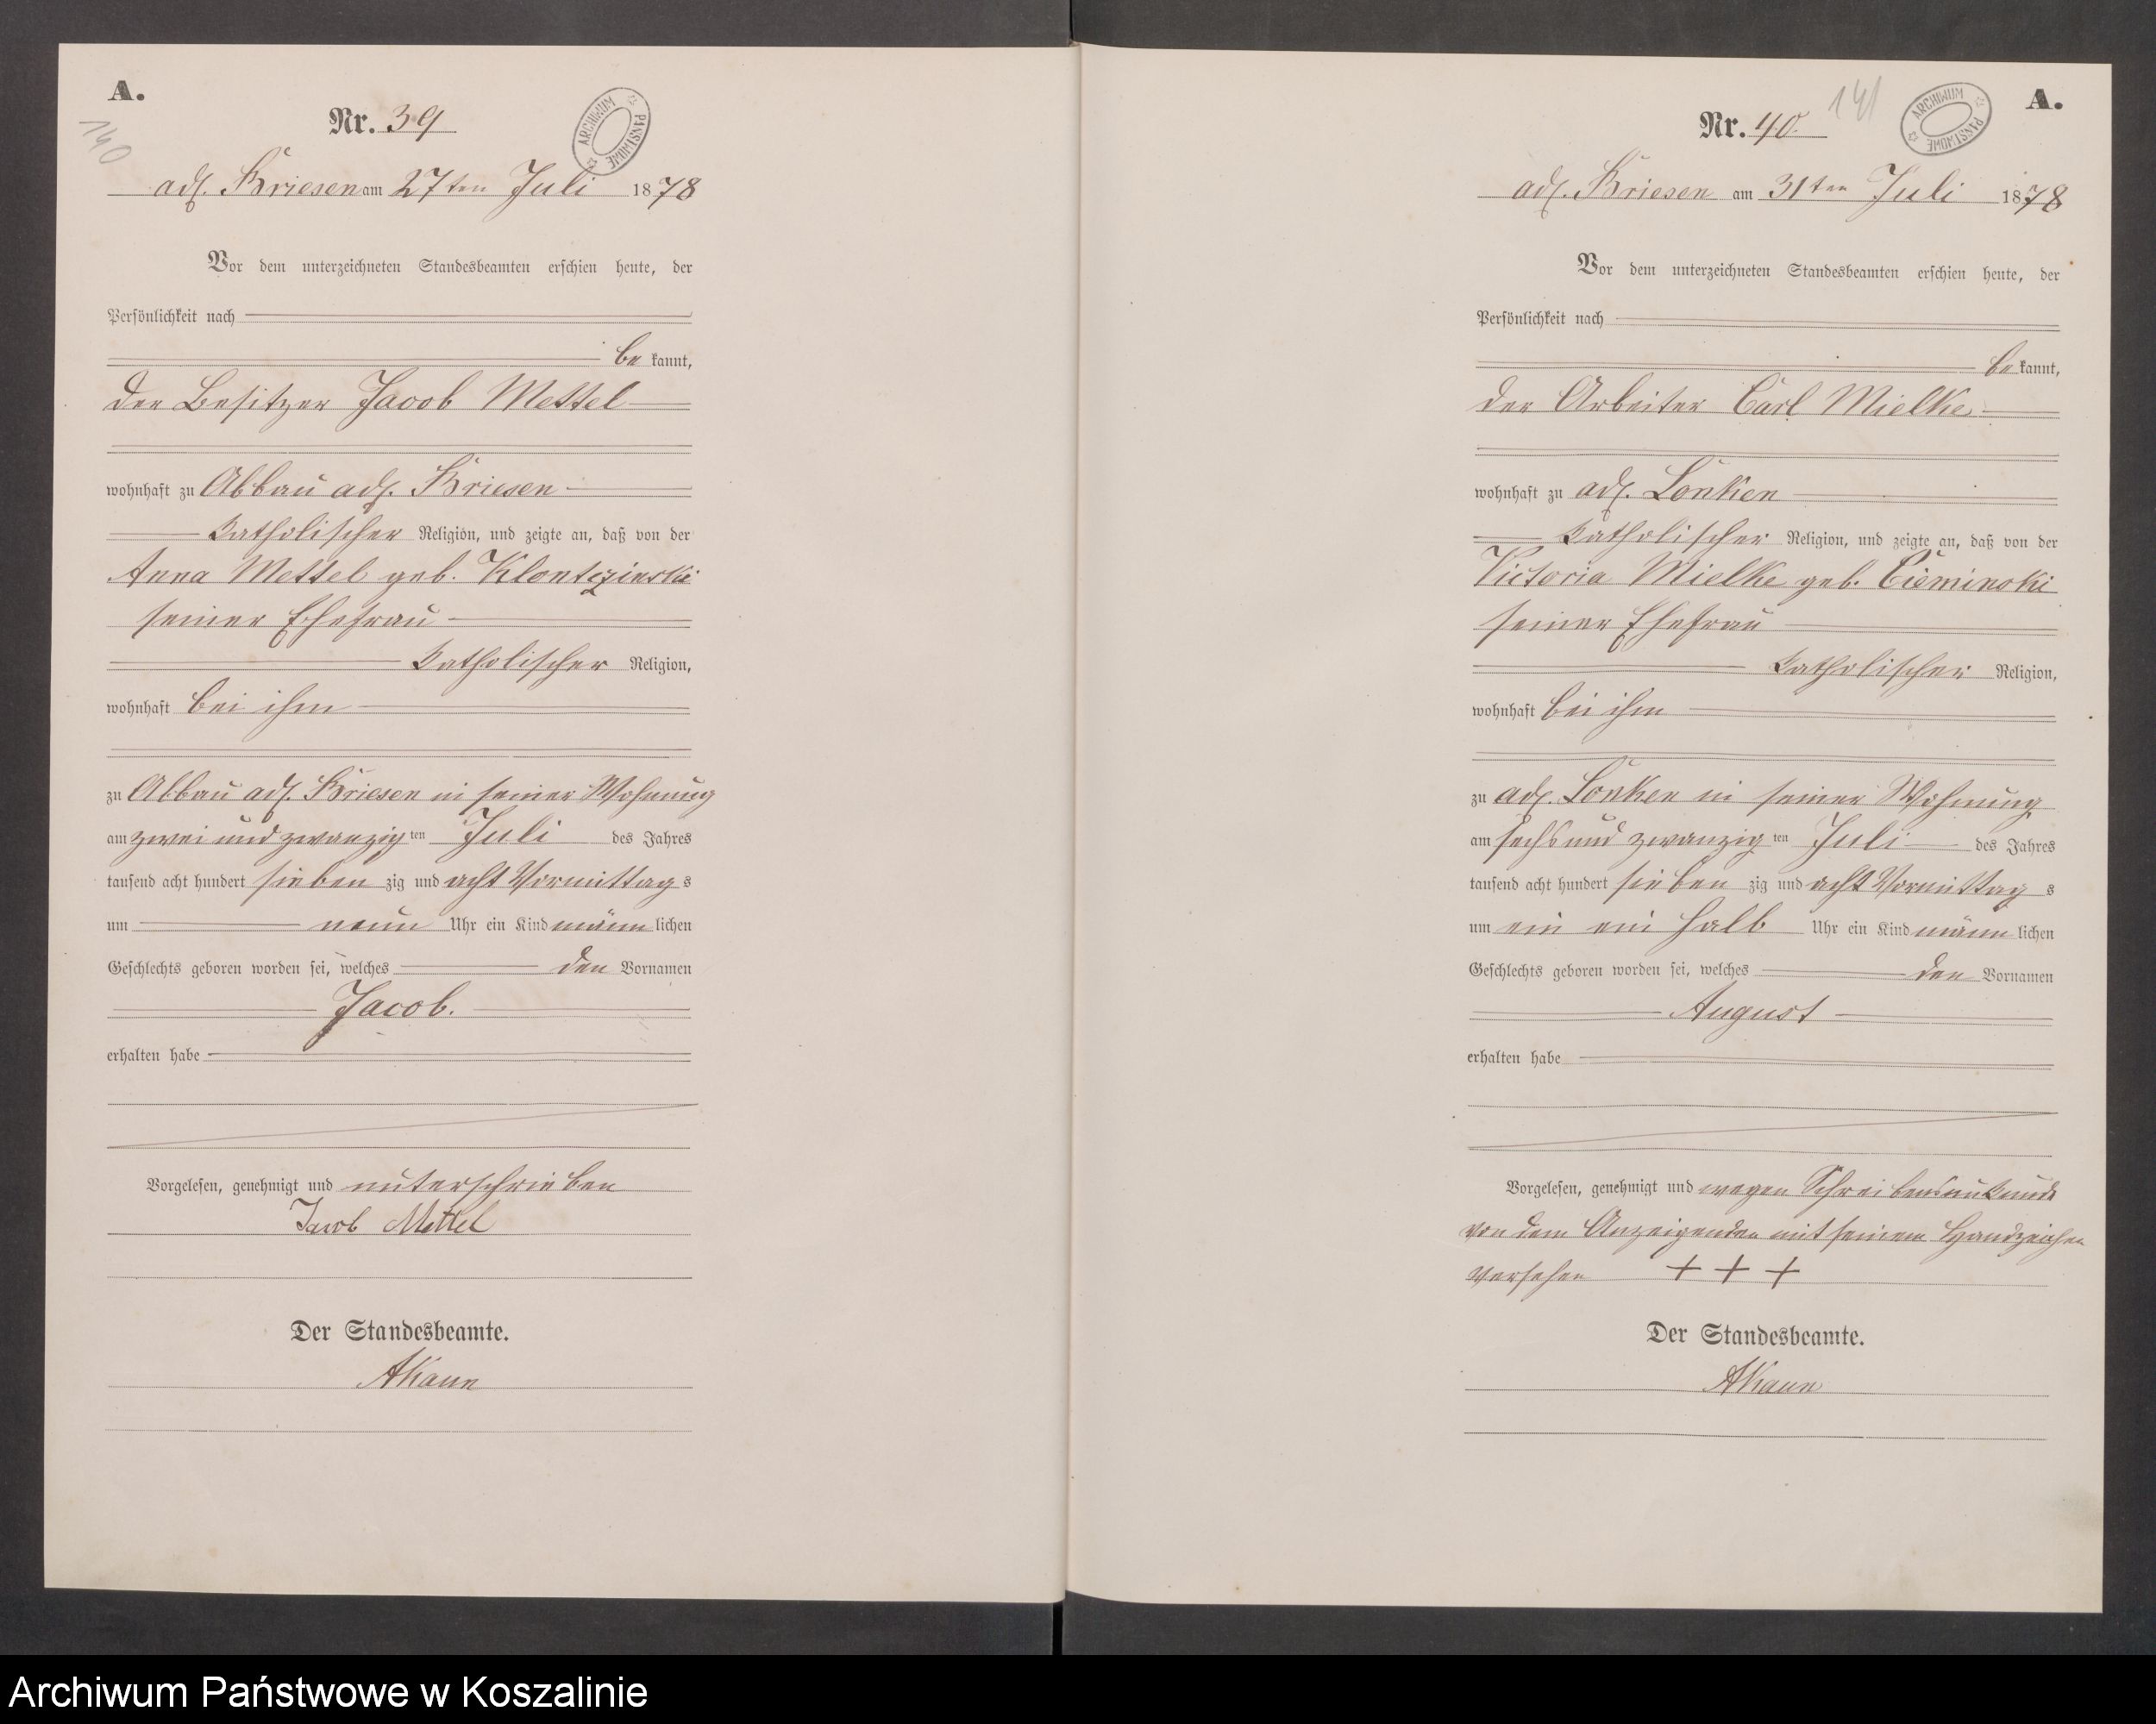 A.
140
Nr. 39
ARCHIWUM PAŃSTWOWE
adl. Briesen am 27ten Juli 1878
Vor dem unterzeichneten Standesbeamten erschien heute, der
Persönlichkeit nach
be kannt,
der Besitzer Jacob Mettel
wohnhaft zu Abbau adl. Briesen
katholischer Religion, und zeigte an, daß von der
Anna Mettel geb. Klontczinski
seiner Ehefrau
katholischer Religion,
wohnhaft bei ihm
zu Abbau adl. Briesen in seiner Wohnung
am zwei und zwanzig ten Juli des Jahres
tausend acht hundert sieben zig und acht Vormittag s
um neun Uhr ein Kind männ lichen
Geschlechts geboren worden sei, welches den Vornamen
Jacob.
erhalten habe
Vorgelesen, genehmigt und unterschrieben
Jacob Mettel
Der Standesbeamte.
AKaun
A.
141
Nr. 40.
ARCHIWUM PAŃSTWOWE
adl. Briesen am 31ten Juli 1878
Vor dem unterzeichneten Standesbeamten erschien heute, der
Persönlichkeit nach
be kannt,
der Arbeiter Carl Mielke
wohnhaft zu adl. Lonken
katholischer Religion, und zeigte an, daß von der
Victoria Mielke geb. Cieminski
seiner Ehefrau
katholischer Religion,
wohnhaft bei ihm
zu adl. Lonken in seiner Wohnung
am sechs und zwanzig ten Juli des Jahres
tausend acht hundert sieben zig und acht Vormittag s
um ein ein halb Uhr ein Kind männ lichen
Geschlechts geboren worden sei, welches den Vornamen
August
erhalten habe
Vorgelesen, genehmigt und wegen Schreibensunkunde
von dem Anzeigenden mit seinem Handzeichen
versehen + + +
Der Standesbeamte.
AKaun
Archiwum Państwowe w Koszalinie